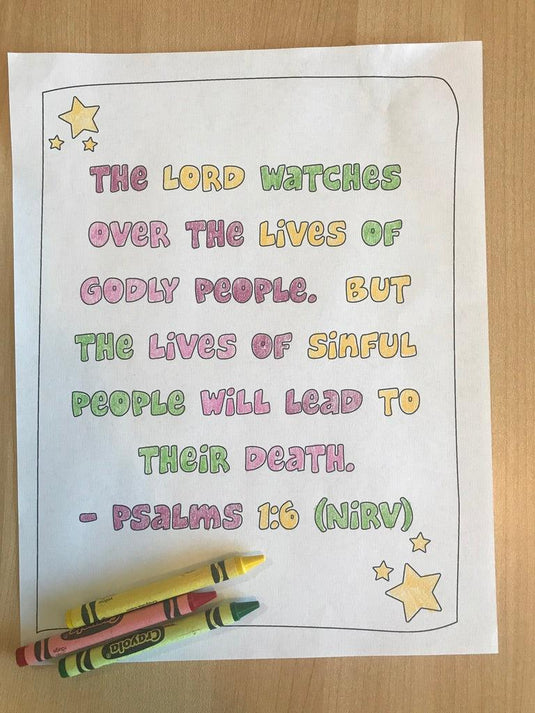 THE LORD WATCHES
OVER THE LIVES OF
GODLY PEOPLE. BUT
THE LIVES OF SINFUL
PEOPLE WILL LEAD TO
THEIR DEATH.
- PSALMS 1:6 (NIRV)
Crayola
Crayola